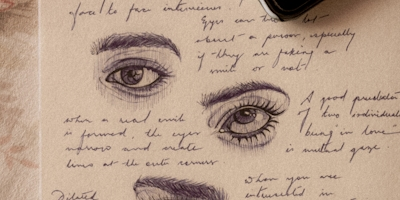 face to face interviews.
Eyes can tell a lot
about a person, especially
if they are faking a
smile or not.
when a real smile
is formed, the eyes
narrow and create
lines at the outer corners
A good prediction
of two individuals
being in love
is mutual gaze
When you are
interested in
Dilated